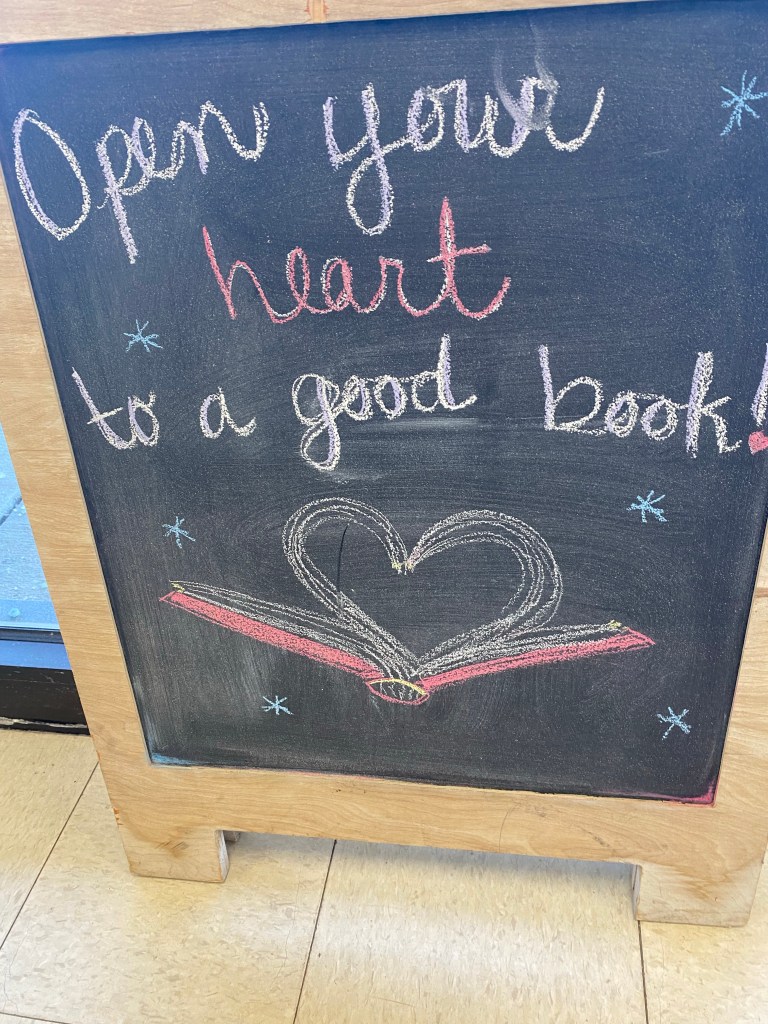 Open your
heart
to a good book!